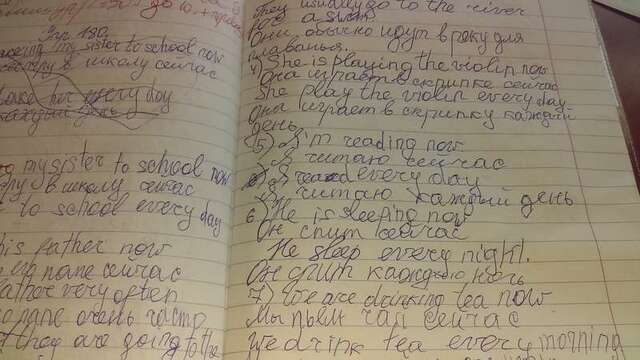 Упр 180
my sister to school now
в школу сейчас
every day
каждый день
my sister to school now
в школу сейчас
to school every day
his father now
папе сейчас
father very often
папе очень часто
they are going to the
They usually go to the river
for a swim.
Они обычно идут в реку для
плаванья.
4) She is playing the violin now
Она играет в скрипке сейчас
She play the violin every day
Она играет в скрипку каждый
день
5) I'm reading now
Я читаю сейчас
I read every day
Я читаю каждый день
6) He is sleeping now
Он спит сейчас
He sleep every night.
Он спит каждую ночь
7) We are drinking tea now
Мы пьём чай сейчас
We drink tea every morning